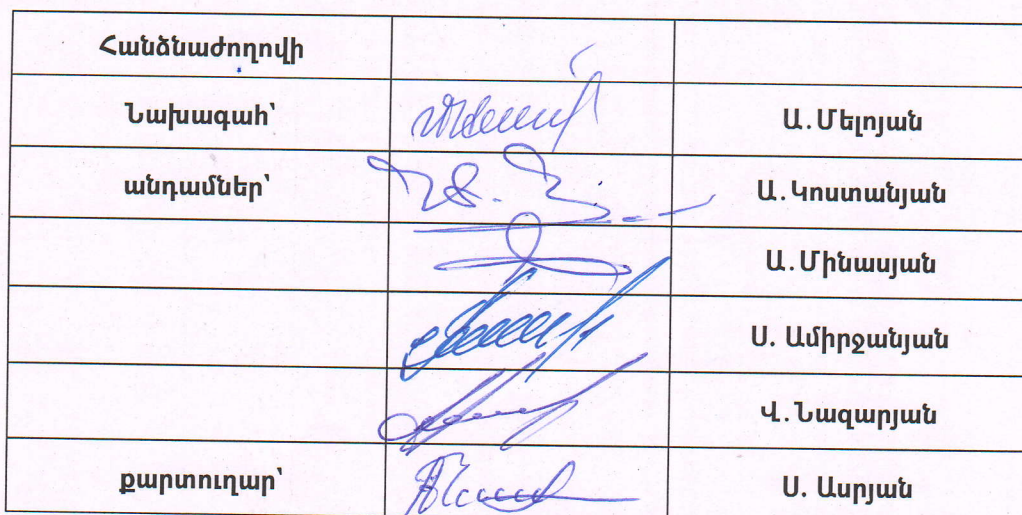 Հանձնաժողովի
Նախագահ՝ Ա.Մելոյան
անդամներ՝ Ա.Կոստանյան
Ա.Մինասյան
Ս. Ամիրջանյան
Վ.Նազարյան
քարտուղար՝ Ս. Ասրյան